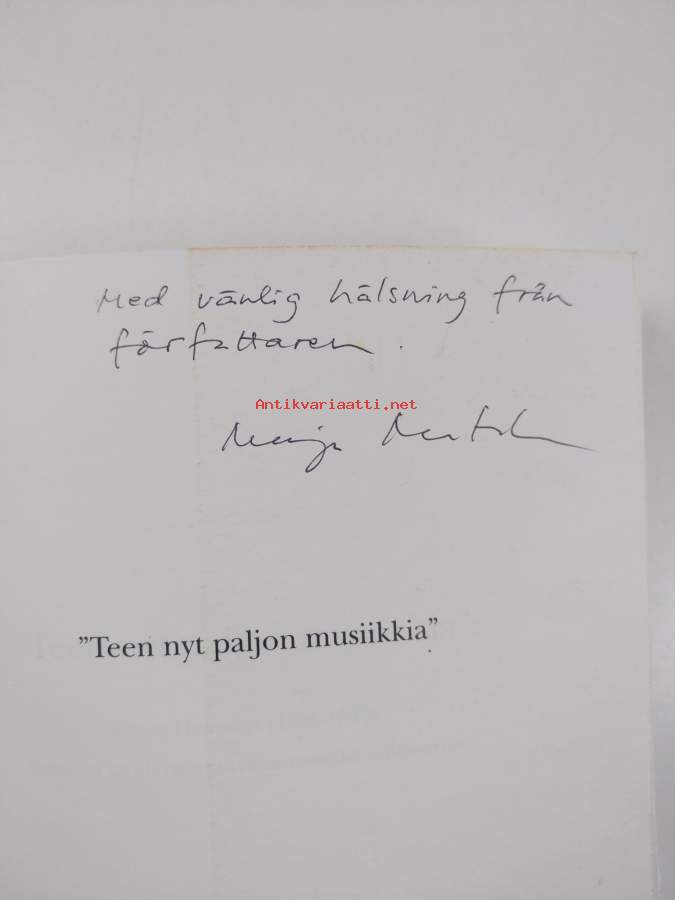 Med vänlig hälsning från
författaren.
Antikvariaatti.net
"Teen nyt paljon musiikkia"